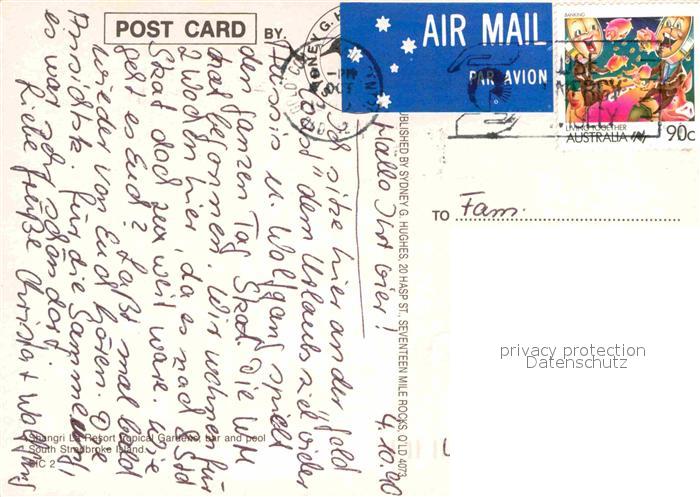 POST CARD
BY
AIR MAIL
PAR AVION
SYDNEY G. H
1-PM
OCT
BANKING
LIVING TOGETHER
AUSTRALIA
90c
TO Fam.
privacy protection
Datenschutz
PUBLISHED BY SYDNEY G. HUGHES, 20 HASP ST., SEVENTEEN MILE ROCKS, Q'LD 4073
4.10.90
Hallo Ihr vier!
Ich sitze hier an der Gold
Coast, dem Urlaubsziel vieler
Aussis u. Wolfgang spielt
den ganzen Tag Skat. Die WM
hat begonnen. Wir wohnen für
2 Wochen hier, da es nach S.Std
Skat doch zu weit wäre. Wie
geht es Euch? Laßt mal bald
wieder von Euch hören. Die
Ansichtsk. für die Sammlung
es war sehr schön dort.
Liebe Grüße Christa + Wolfgang
Shangri La Resort tropical Gardens, bar and pool
South Stradbroke Island.
SIC 2